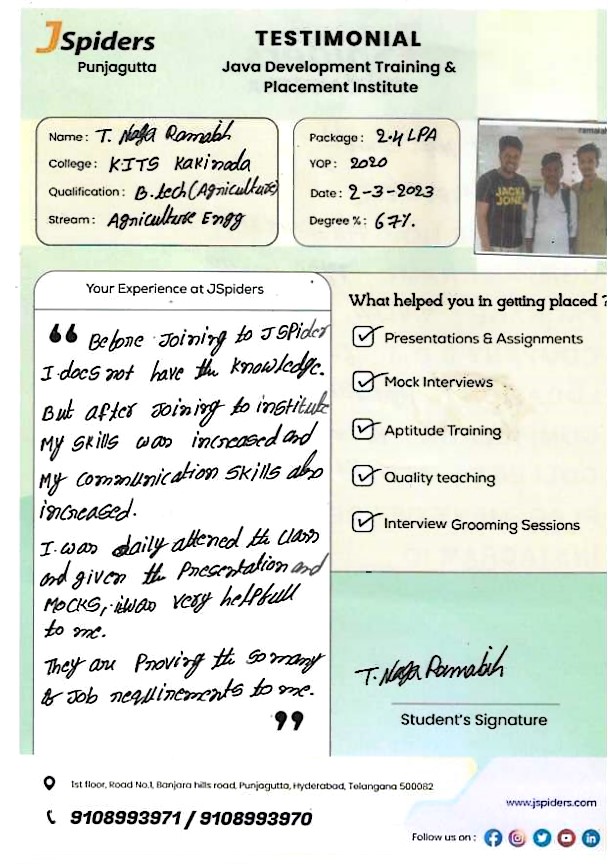 JSpiders
Punjagutta
TESTIMONIAL
Java Development Training &
Placement Institute
Name : T. Naga Ramaiah
College : KITS Kakinada
Qualification : B.tech (Agriculture)
Stream : Agriculture Engg
Package : 2.4 LPA
YOP : 2020
Date : 2-3-2023
Degree % : 67%
ramaiah
JACK
JONE
Your Experience at JSpiders
“ Before Joining to JSpider
I does not have the knowledge.
But after Joining to institute
My skills was increased and
My communication skills also
increased.
I was daily attened the class
and given the Presentation and
Mocks, it was very helpfull
to me.
They are Proving the so many
Job requirements to me.
”
What helped you in getting placed ?
Presentations & Assignments
Mock Interviews
Aptitude Training
Quality teaching
Interview Grooming Sessions
T. Naga Ramaiah
Student's Signature
1st floor, Road No.1, Banjara hills road, Punjagutta, Hyderabad, Telangana 500082
9108993971 / 9108993970
www.jspiders.com
Follow us on :